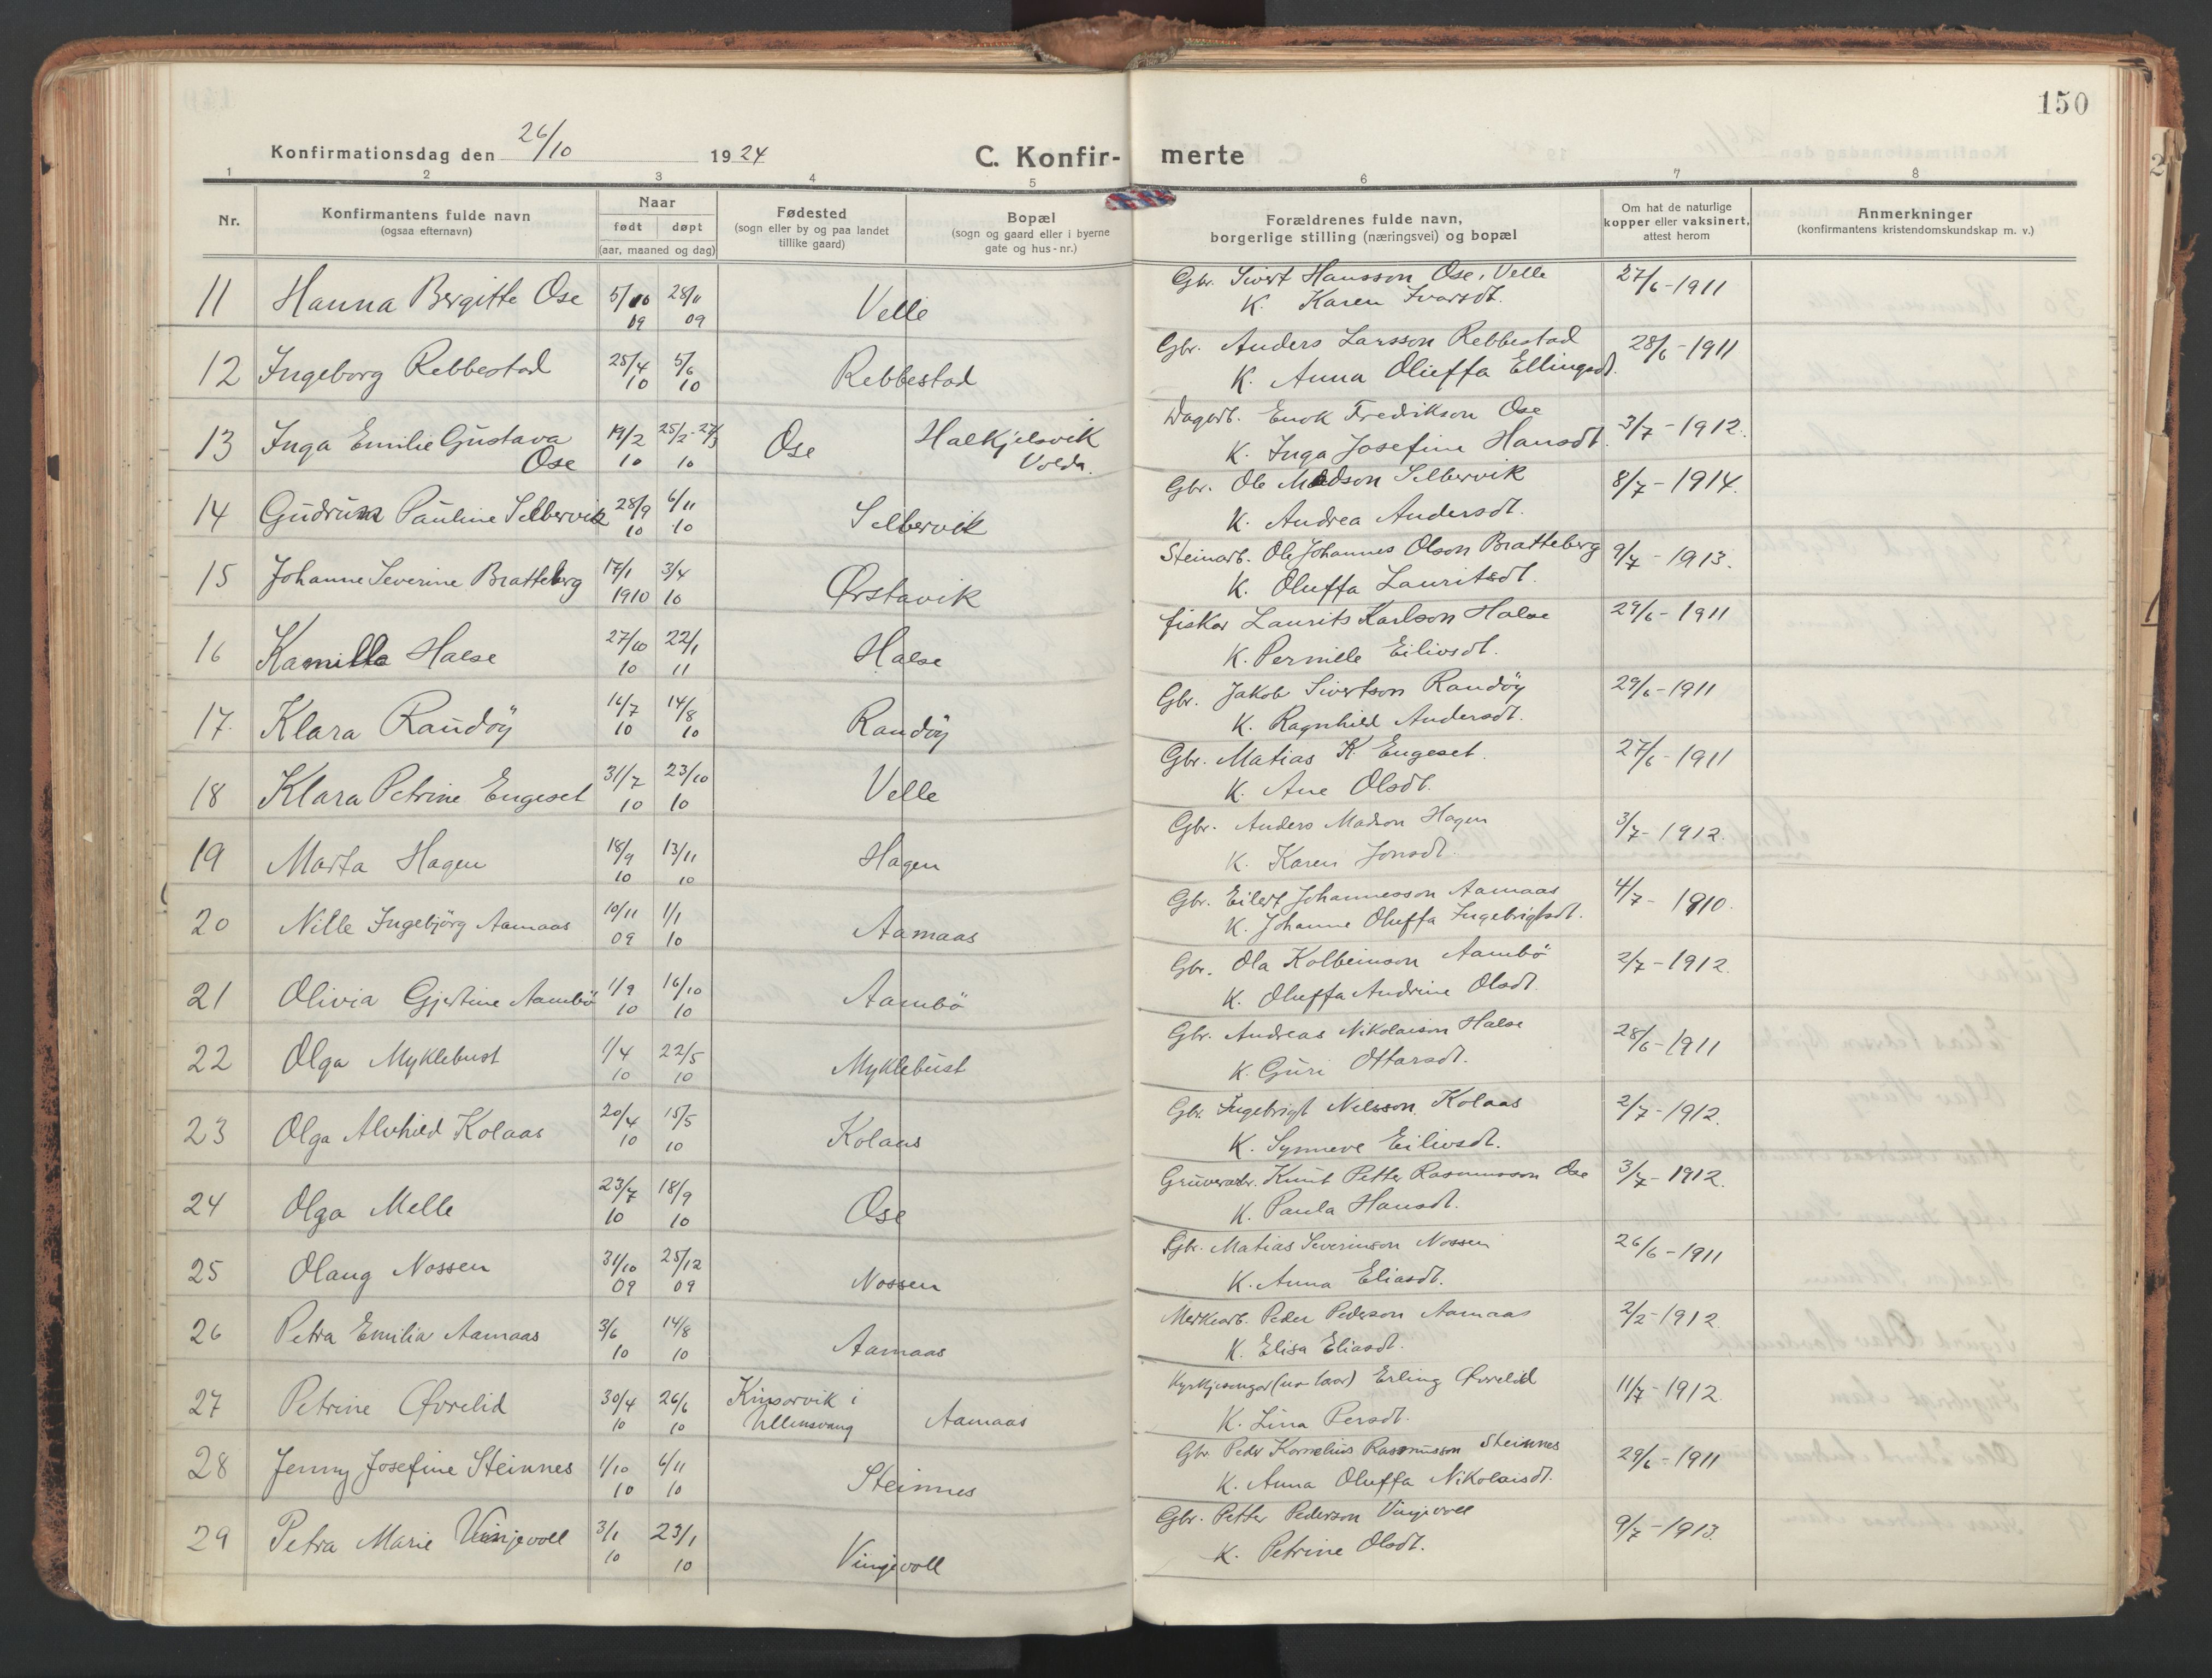 150
Konfirmationsdag den 26/10 1924
C. Konfir- merte
1 2 3 4 5 6 7 8
Nr.
Konfirmantens fulde navn
(ogsaa efternavn)
Naar
født døpt
(aar, maaned og dag)
Fødested
(sogn eller by og paa landet
tillike gaard)
Bopæl
(sogn og gaard eller i byerne
gate og hus-nr.)
Forældrenes fulde navn,
borgerlige stilling (næringsvei) og bopæl
Om hat de naturlige
kopper eller vaksinert,
attest herom
Anmerkninger
(konfirmantens kristendomskundskap m. v.)
11 Hanna Bergitte Ose 5/10 09 28/11 09 Velle Gbr. Sivert Hansson Ose, Velle 27/6-1911
K. Karen Ivarsdt.
12 Ingeborg Rebbestad 25/4 10 5/6 10 Rebbestad Gbr. Anders Larsson Rebbestad 28/6-1911
K. Anna Olieffa Ellingsdt.
13 Inga Emilie Gustava 19/2 10 25/2-27/3 10 Ose Halkjelsvik Dagarb. Enok Fredrikson Ose 3/7-1912.
Ose Volda. K. Inga Josefine Hansdt.
14 Gudrun Pauline Selbervik 28/9 10 6/11 10 Selbervik Gbr. Ole Madson Selbervik 8/7-1914.
K. Andrea Andersdt.
15 Johanne Severine Bratteberg 17/1 1910 3/4 10 Ørstavik Steinarb. Ole Johannes Olson Bratteberg 9/7-1913.
K. Oluffa Lauritsdt.
16 Kamilla Halse 27/10 10 22/1 11 Halse fisker Laurits Karlson Halse 29/6-1911
K. Pernille Eilivsdt.
17. Klara Raudøy 16/7 10 14/8 10 Raudøy Gbr. Jakob Sivertson Raudøy 29/6-1911
K. Ragnhild Andersdt.
18 Klara Petrine Engeset 31/7 10 23/10 10 Velle Gbr. Matias K. Engeset. 27/6-1911
K. Ane Olsdt.
19 Marta Hagen 18/9 10 13/11 10 Hagen Gbr. Anders Madson Hagen 3/7-1912.
K. Karen Jonsdt.
20 Nille Ingebjørg Aamaas 10/11 09 1/1 10 Aamaas Gbr. Eilert Johannesson Aamaas 4/7-1910.
K. Johanne Oluffa Ingebrigtsdt.
21 Olivia Gjertine Aambö 1/9 10 16/10 10 Aambö Gbr. Ola Kolbeinson Aambö 2/7-1912.
K. Oluffa Andrine Olsdt.
22 Olga Myklebust 1/4 10 22/5 10 Myklebust Gbr. Andreas Nikolaison Halse 28/6-1911
K. Guri Ottarsdt.
23 Olga Alvhild Kolaas 20/4 10 15/5 10 Kolaas Gbr. Ingebrigt Nilsson Kolaas 2/7-1912.
K. Synneve Eilivsdt.
24 Olga Melle 23/7 10 18/9 10 Ose Gruvearb. Knut Petter Rasmusson Ose 3/7-1912.
K. Paula Hansdt.
25 Olaug Nossen 31/10 09 25/12 09 Nossen Gbr. Matias Severinson Nossen 26/6-1911
K. Anna Eliasdt.
26 Petra Emilia Aamaas 3/6 10 14/8 10 Aamaas Merkearb. Peder Pederson Aamaas 2/2-1912.
K. Elisa Eliasdt.
27 Petrine Øvrelid 30/4 10 26/6 10 Kinsarvik i Kyrkjesongar Erling Øvrelid 11/7-1912.
Ullensvang Aamaas K. Lina Persdt.
28 Jenny Josefine Steinnes 1/10 10 6/11 10 Steinnes Gbr. Peder Kornelius Rasmusson Steinnes 29/6-1911
K. Anna Oluffa Nikolaisdt.
29 Petra Marie Vinjevoll 3/1 10 23/1 10 Vinjevoll Gbr. Petter Pederson Vinjevoll 9/7-1913.
K. Petrine Olsdt.